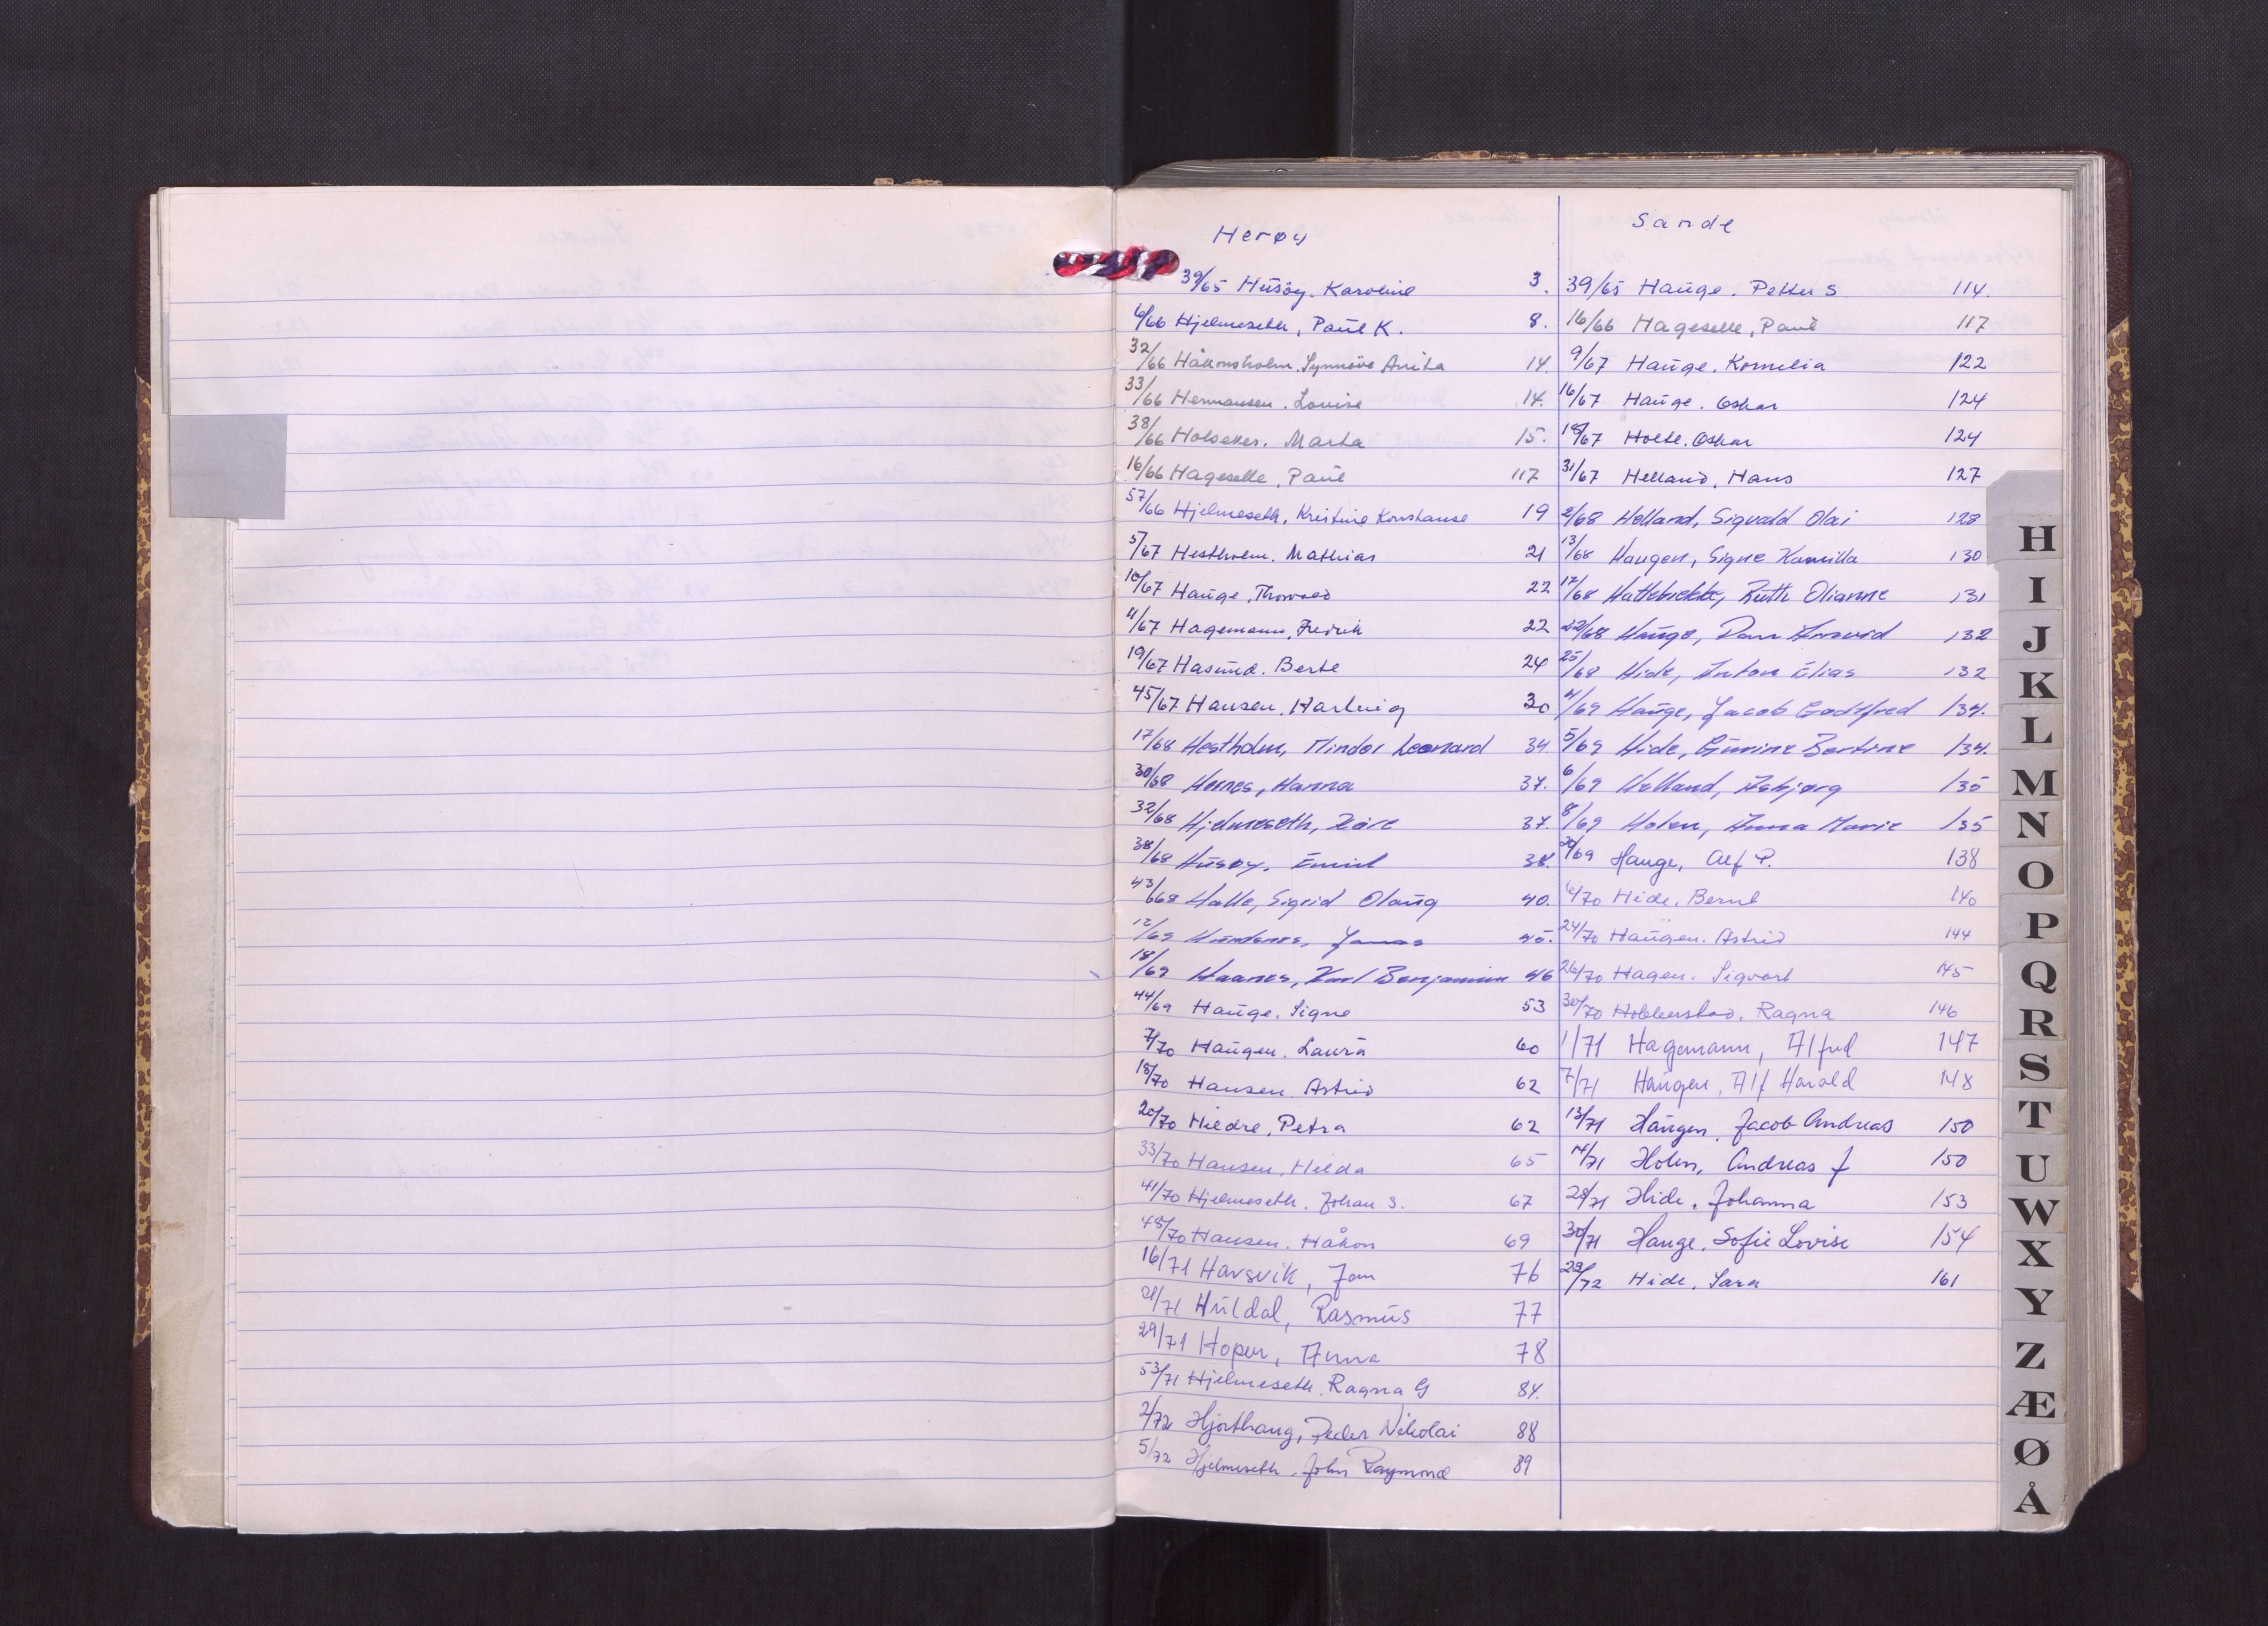 Herøy
39/65 Husøy. Karoline 3.
6/66 Hjelmeseth, Paul K. 8.
32/66 Håkonsholm. Synnöve Anita 14.
33/66 Hermansen. Lovise 14.
38/66 Marta 15.
16/66 Hageselle, Paul 117
57/66 Hjelmeseth, Kristine Konstanse 19
5/67 Hestholm. Mathias 21
10/67 Hauge, 22
11/67 Hagemann, Fredrik 22
19/67 Hasund. Berte 24
45/67 Hansen. Hartvig 30
17/68 Hestholm, Mindor Leonard 34
30/68 Hanna 37.
32/68 Hjelmeseth, Kåre 37.
38/68 Husøy. Emil 38.
43/68 Halle, Sigrid Olaug 40.
12/69 45.
18/69 Haanes, Karl Benjamin 46
44/69 Hauge. Signe 53
7/70 Haugen. Laura 60
18/70 Hansen Astrid 62
20/70 Petra 62
33/70 Hansen, Hilda 65
41/70 Hjelmeseth. Johan S. 67
48/70 Hansen. Håkon 69
16/71 Havsvik, Jan 76
21/71 Huldal, Rasmus 77
29/71 Anna 78
53/71 Hjelmeseth. Ragna G 84.
2/72 Hjorthaug, Peder Nikolai 88
5/72 Hjelmeseth. John Raymond 89
Sande
39/65 Hauge. Petter S 114.
16/66 Hageselle, Paul 117
9/67 Hauge. Kornelia 122
16/67 Hauge. Oskar 124
18/67 Holte. Oskar 124
31/67 Helland, Hans 127
2/68 Helland, Sigvald Olai 128
13/68 Haugen, Signe Kamilla 130
17/68 Hattebrekke, Ruth Olianne 131
22/68 Hauge, Dan 132
25/68 Hide, Anton Elias 132
4/69 Hauge, Jacob Godtfred 134.
5/69 Hide, Gurine Bertine 134.
6/69 Helland, Asbjørg 135
8/69 Holen, Anna Marie 135
20/69 Hauge, Alf P. 138
6/70 Hide. Bernt 140
24/70 Haugen. Astrid 144
26/70 Hagen. Sigvart 145
30/70 Hobberstad. Ragna 146
1/71 Hagemann, Alfred 147
7/71 Haugen, Alf Harald 148
13/71 Haugen, Jacob Andreas 150
14/71 Holen, Andreas J 150
28/71 Hide, Johanna 153
30/71 Hauge, Sofie Lovise 154
23/72 Hide, Sara 161
H
I
J
K
L
M
N
O
P
Q
R
S
T
U
W
X
Y
Z
Æ
Ø
Å